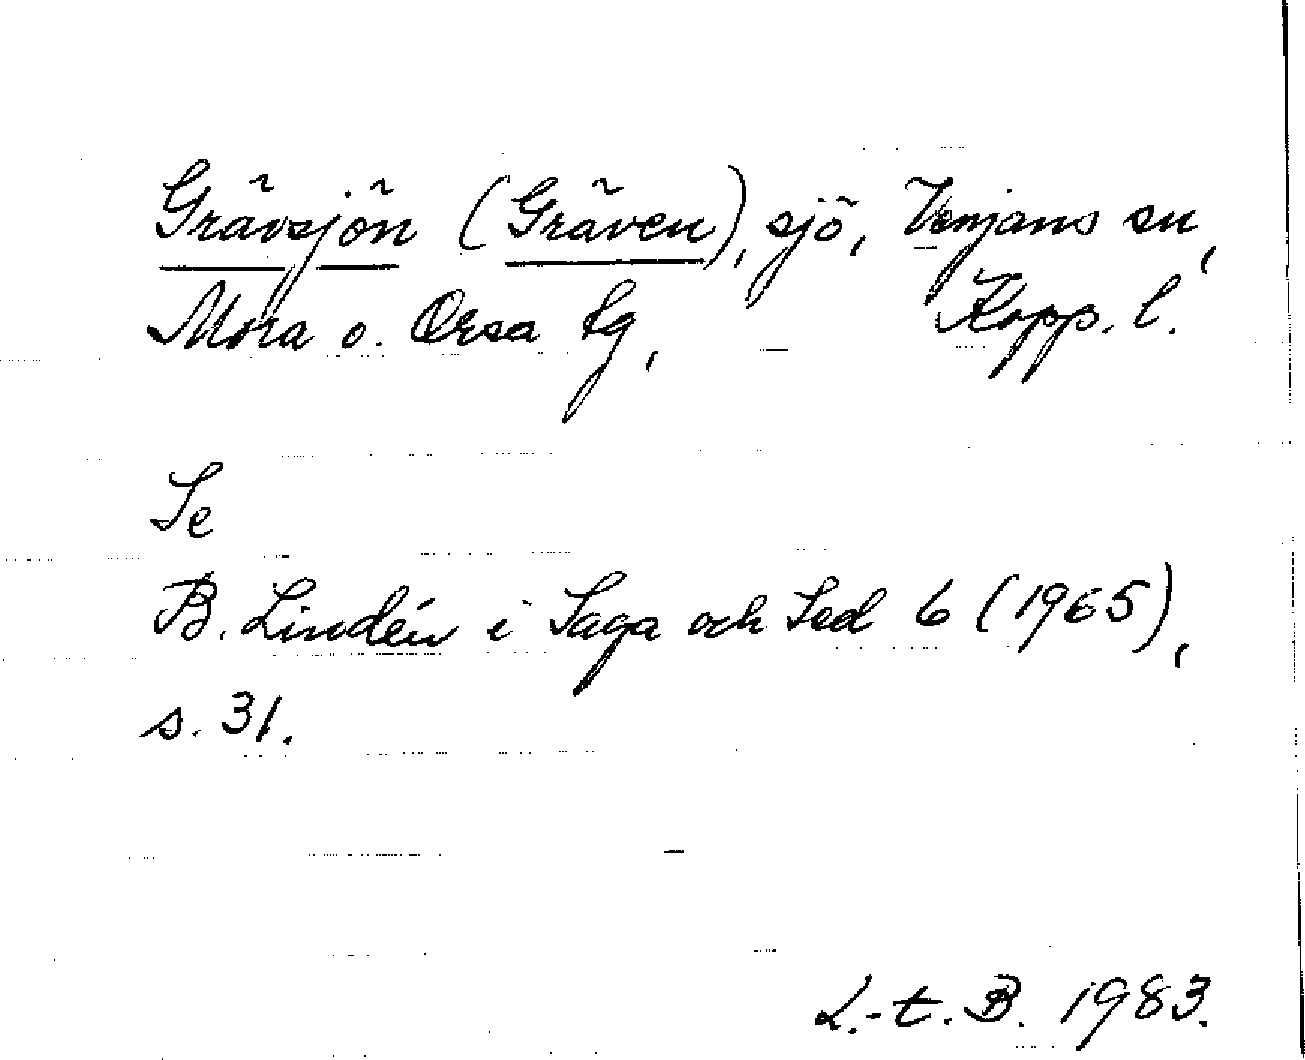 Grävsjön (Gräven), sjö, Venjans sn,
Mora o. Orsa tg, Kopp. l.
Se
B. Lindén i Saga och Sed 6 (1965),
s. 31.
L.-t. B. 1983.